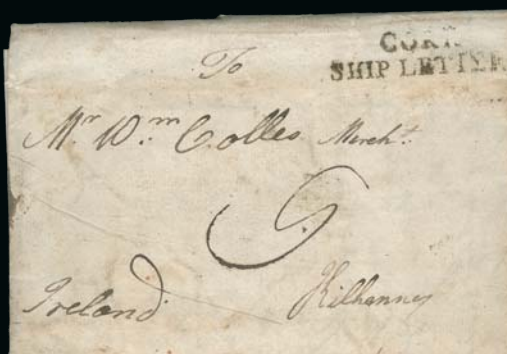 To
CORK
SHIP LETTER
Mr Wm Colles Mercht.
Ireland Kilkenny